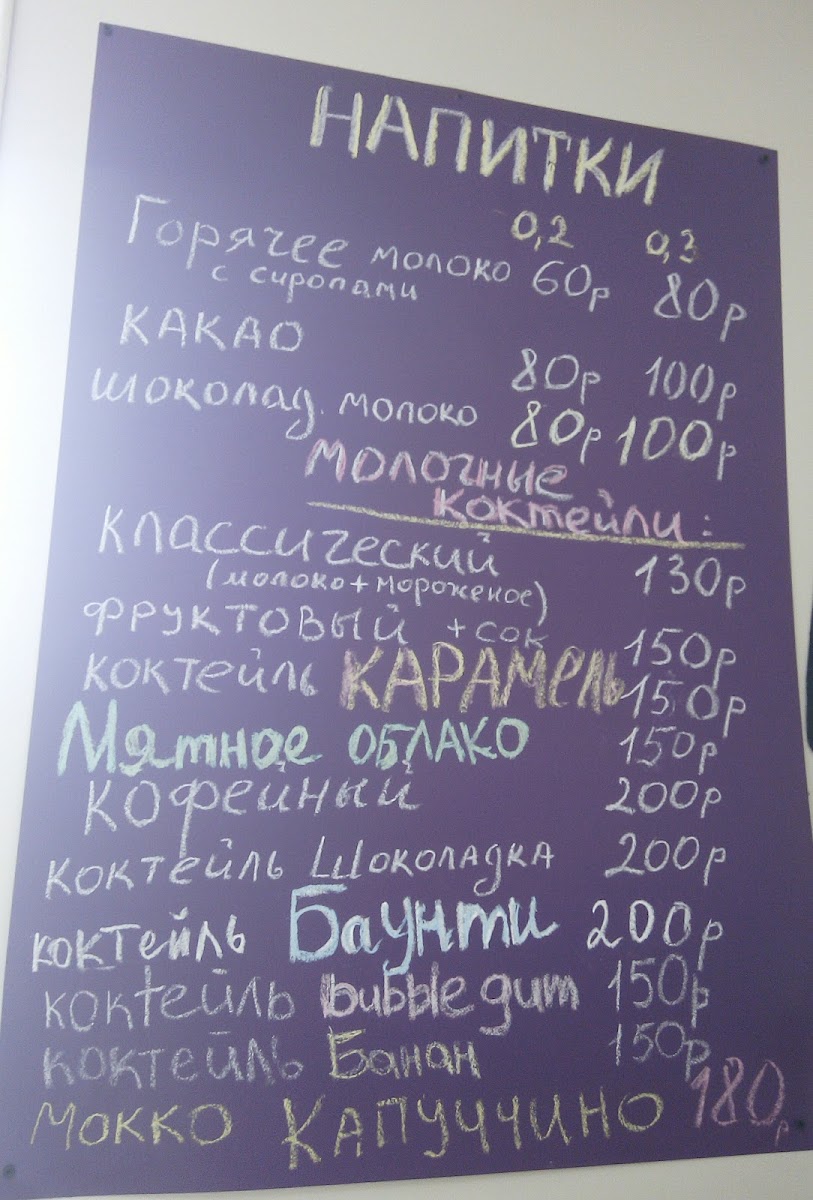 НАПИТКИ
0,2 0,3
Горячее молоко 60р 80р
с сиропами
КАКАО 80р 100р
шоколад. молоко 80р 100р
молочные
коктейли:
Классический 130р
(молоко+мороженое)
фруктовый +сок 150р
коктейль КАРАМЕЛЬ 150р
Мятное облако 150р
Кофейный 200р
коктейль Шоколадка 200р
коктейль Баунти 200р
коктейль bubble gum 150р
коктейль Банан 150р
Мокко Капуччино 180р